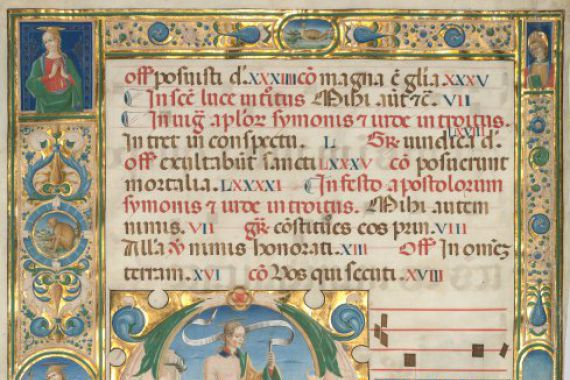 off posuisti d. XXXIIII cō magna ē glīa. XXXV
In scē luce in tōitus Mihi aūt ēc. VII
In uig aplor symonis ⁊ iude introitus.
Intret in conspectu. L Gr̄. uindica d. LXVII
off exultabūt sancti LXXXV cō posuerunt
mortalia. LXXXXI In festo apostolorum
symonis ⁊ iude introitus. Mihi autem
nimis. VII gr̄. cōstitues eos prin. VIII
Alla ℣ nimis honorati. XIII Off In omēz
terram. XVI cō Vos qui secuti. XVIII